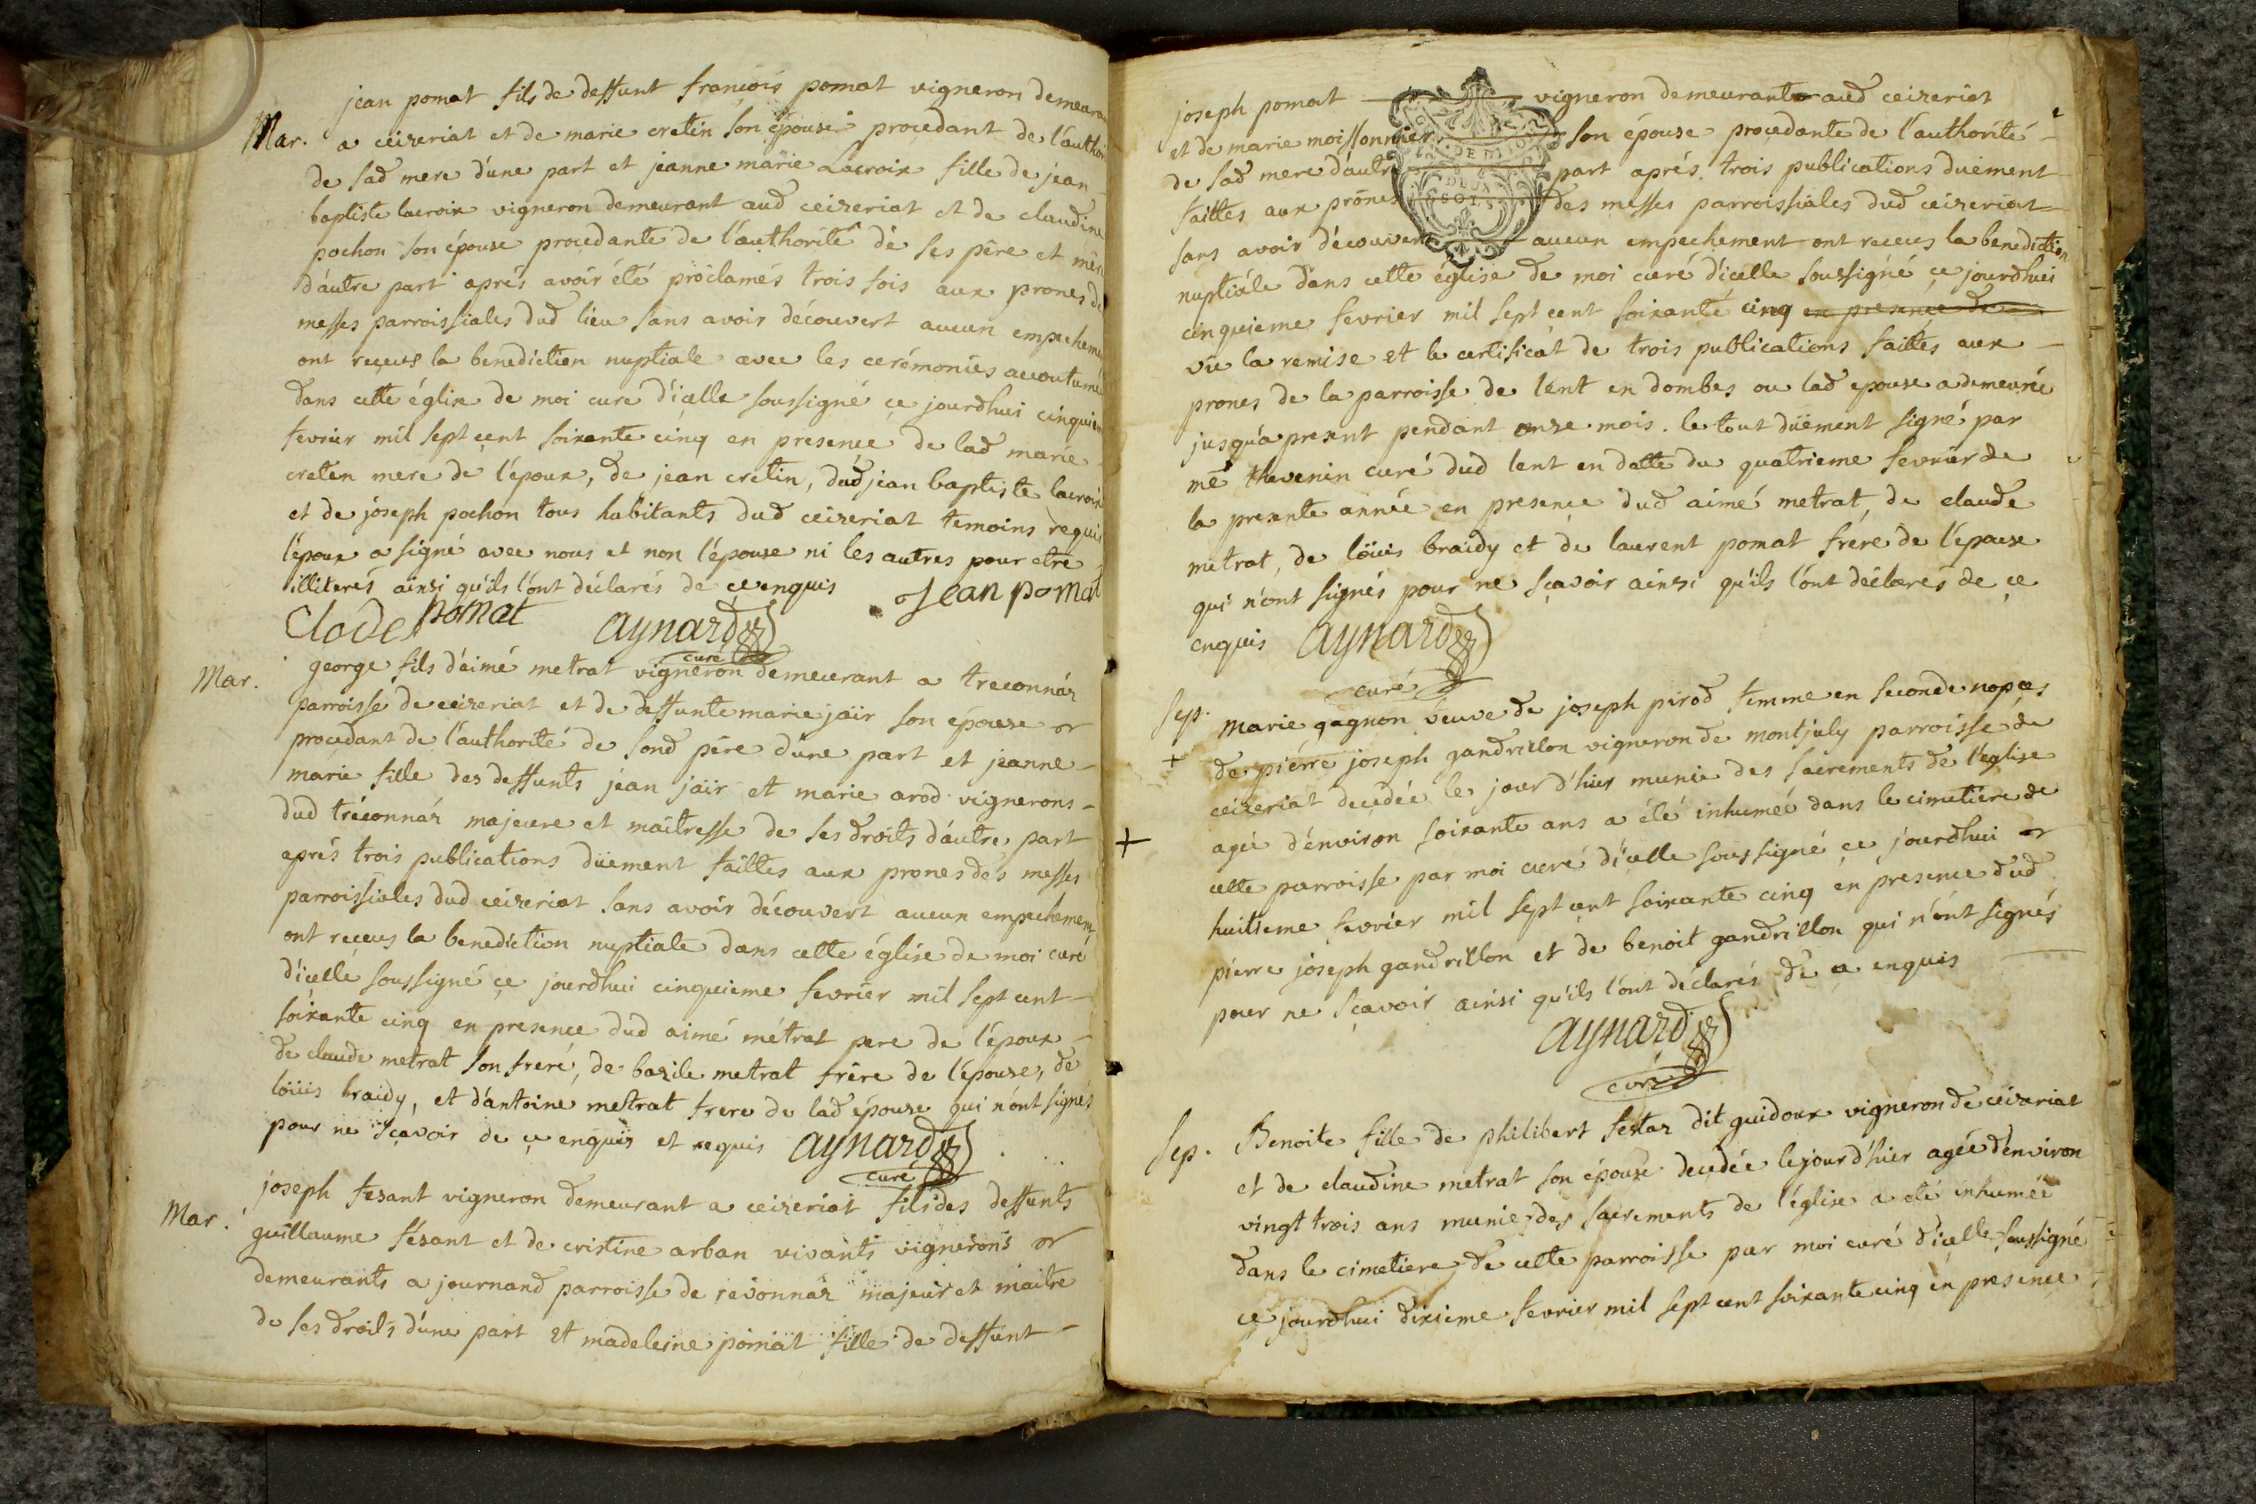 jean pomat fils de deffunt françois pomat vigneron demeuran
Mar. a ceizeriat et de marie cretin son épouse procedant de l'autho
de sad mere d'une part et jeanne marie Lacroix fille de jean
baptiste lacroix vigneron demeurant aud ceizeriat et de claudine
pochon son épouse procedante de l'authorité de ses père et mère
d'autre part aprés avoir été proclamés trois fois aux prones de
messes parroissiales dud lieu sans avoir découvert aucun empecheme
ont reçeus la benediction nuptiale avec les cerémonies accoutumé
dans cette église de moi curé d'icelle soussigné ce jourdhui cinquiem
fevrier mil sept cent soixante cinq en presence de lad marie
creten mere de l'époux, de jean cretin, dud jean baptiste lacroix
et de joseph pochon tous habitants dud ceizeriat temoins requis
l'époux a signé avec nous et non l'épouse ni les autres pour etre
illiterés ainsi qu'ils l'ont déclarés de ce enquis Jean pomat
Clode pomat aynard
curé
Mar. george fils d'aimé metrat vigneron demeurant a treconnáz
parroisse de ceizeriat et de deffunte marie jaïr son épouse
procedant de l'authorité de sond père d'une part et jeanne
marie fille des deffunts jean jaïr et marie arod vignerons
dud tréconnáz majeure et maitresse de ses droits d'autre part
aprés trois publications düement faittes aux prones des messes
parroissiales dud ceizeriat sans avoir découvert aucun empechement
ont receus la benediction nuptiale dans cette église de moi curé
d'icelle soussigné ce jourdhui cinquieme fevrier mil sept cent
soixante cinq en presence dud aimé métrat pere de l'époux
de claude metrat son freré, de bazile metrat frère de l'épouse, de
loüis braidy, et d'antoine metrat frere de lad épouse qui n'ont signés
pour ne sçavoir de ce enquis et requis aynard
curé
Mar. joseph fezant vigneron demeurant a ceizeriat fils des deffunts
guillaume fézant et de cristine arban vivants vignerons
demeurants a journand parroisse de revonnáz majeur et maitre
de ses droits d'une part et madeleine pomat fille de deffunt
joseph pomat vigneron demeurant aud ceizeriat
et de marie moissonnier son épouse procedante de l'authorité
de sad mere d'autre part aprés trois publications duëment
faittes aux prônes des messes parroissiales dud ceizeriat
sans avoir découvert aucun empechement ont receus la benediction
nuptiale dans cette église de moi curé d'icelle soussigné ce jourdhui
cinquieme fevrier mil sept cent soixante cinq en presence de
vû la remise et le certificat de trois publications faittes aux
prones de la parroisse de lent en dombes ou lad epouse a demeurée
jusqu'a present pendant onze mois. le tout düement signé par
mé thevenin curé dud lent en datte du quatrieme fevrier de
la presente année en presence dud aimé metrat, de claude
metrat, de loüis braidy et de laurent pomat frére de l'épouse
qui n'ont signés pour ne sçavoir ainsi qu'ils l'ont déclarés de ce
enquis aynard
curé
Sep. marie gagnon veuve de joseph pirod femme en seconde nopces
de pierre joseph gandrillon vigneron de montjuly parroisse de
ceizeriat decedée le jour d'hier munie des sacrements de l'eglise
agée d'environ soixante ans a été inhumée dans le cimetière de
cette parroisse par moi curé d'icelle soussigné ce jourdhui
huitieme fevrier mil sept cent soixante cinq en presence dud
pierre joseph gandrillon et de benoit gandrillon qui n'ont signés
pour ne sçavoir ainsi qu'ils l'ont déclarés de ce enquis
aynard
curé
Sep. Benoite fille de philibert festaz dit guidoux vigneron de ceizeriat
et de claudine metrat son épouse decedée le jour d'hier agée d'environ
vingt trois ans munie des sacrements de l'église a été inhumée
dans le cimetiere de cette parroisse par moi curé d'icelle soussigné
ce jourdhui dixieme fevrier mil sept cent soixante cinq en presence